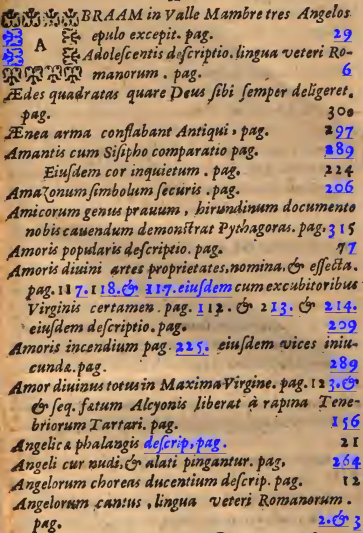 ABRAAM in Valle Mambre tres Angelos
epulo excepit. pag. 29
Adolescentis descriptio. lingua veteri Ro-
manorum. pag. 6
Ædes quadratas quare Deus sibi semper deligeret.
pag. 300
Ænea arma conflabant Antiqui, pag. 297
Amantis cum Sisipho comparatio pag. 289
Eiusdem cor inquietum. pag. 224
Amazonum simbolum securis. pag. 206
Amicorum genus prauum, hirundinum documento
nobis cauendum demonstrat Pythagoras. pag. 315
Amoris popularis descriptio. pag. 77
Amoris diuini artes proprietates, nomina, & effecta.
pag. 117. 118. & 117. eiusdem cum excubitoribus
Virginis certamen. pag. 112. & 213. & 214.
eiusdem descriptio. pag. 209
Amoris incendium pag. 225. eiusdem vices iniu-
cundæ. pag. 289
Amor diuinus totus in Maxima Virgine. pag. 123. &
& seq. fatum Alcyonis liberat à rapina Tene-
briorum Tartari. pag. 156
Angelicæ phalangis descrip, pag. 21
Angeli cur nudi, & alati pingantur. pag. 264
Angelorum choreas ducentium descrip. pag. 12
Angelorum cantus, lingua veteri Romanorum.
pag. 2. & 3